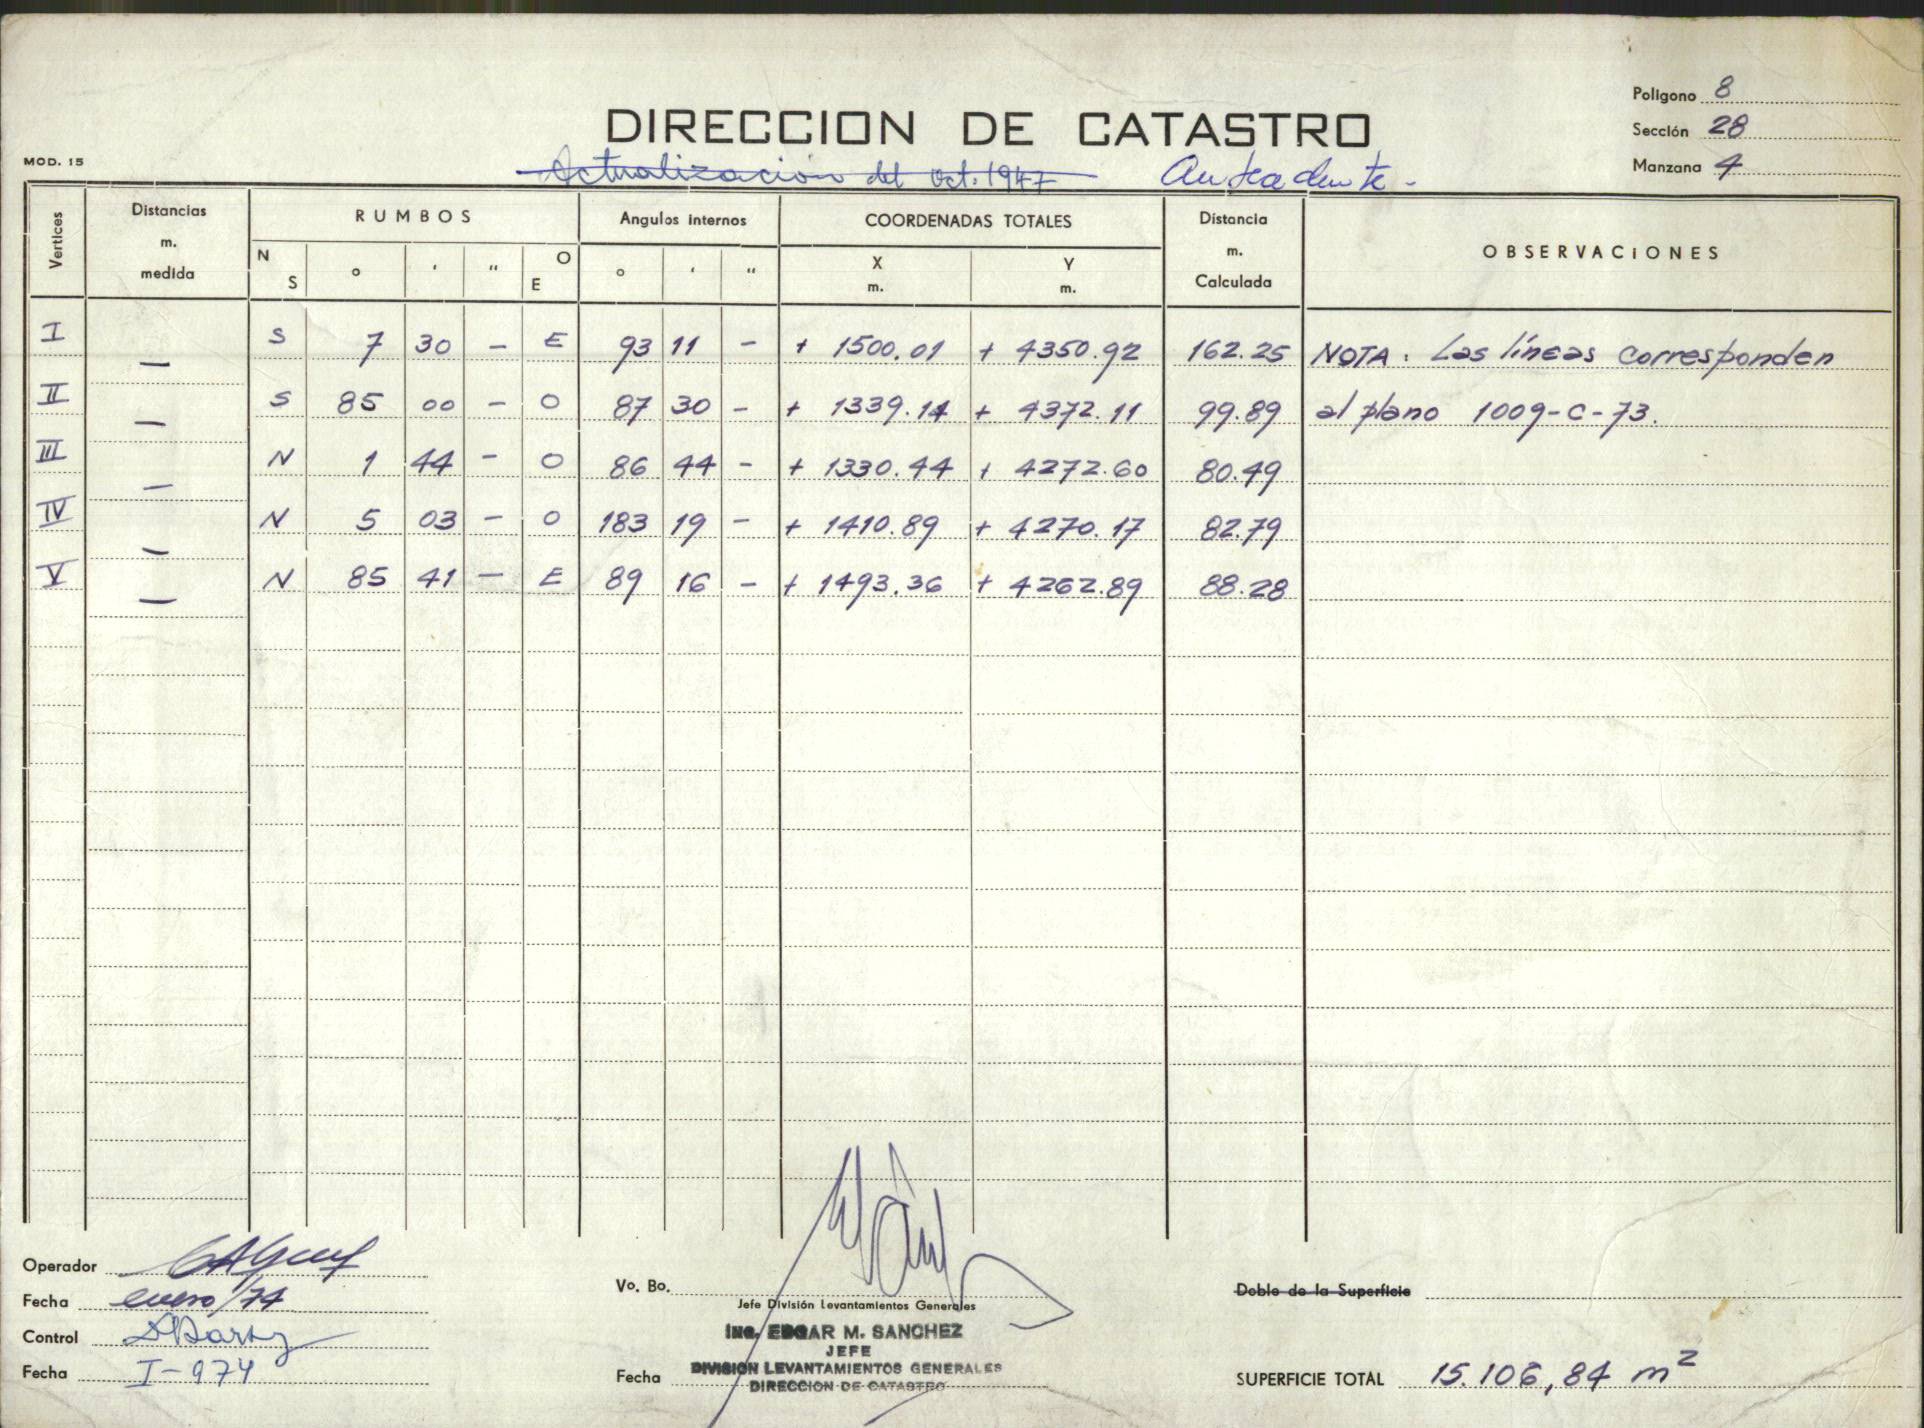 Polígono 8
DIRECCION DE CATASTRO
Sección 28
MOD. 15
Actualización del oct. 1947 Antecedente.
Manzana 4
Vertices Distancias m. medida RUMBOS Angulos internos COORDENADAS TOTALES Distancia m. Calculada OBSERVACIONES
N S ° ' " O E ° ' " X m. Y m.
I — S 7 30 – E 93 11 – + 1500.01 + 4350.92 162.25 NOTA: Las líneas corresponden
II — S 85 00 – O 87 30 – + 1339.14 + 4372.11 99.89 al plano 1009-C-73.
III — N 1 44 – O 86 44 – + 1330.44 + 4272.60 80.49
IV — N 5 03 – O 183 19 – + 1410.89 + 4270.17 82.79
V — N 85 41 – E 89 16 – + 1493.36 + 4262.89 88.28
Operador
Fecha enero/74
Control
Fecha I-974
Vo. Bo.
Jefe División Levantamientos Generales
Ing. EDGAR M. SANCHEZ
JEFE
DIVISION LEVANTAMIENTOS GENERALES
Fecha
DIRECCION DE CATASTRO
Doble de la Superficie
SUPERFICIE TOTAL 15.106,84 m²